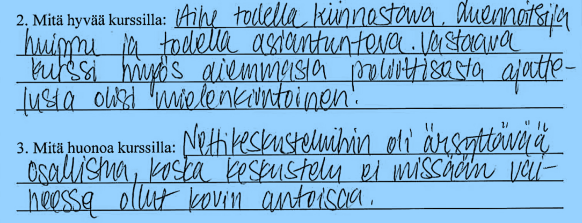 2. Mitä hyvää kurssilla: Aihe todella kiinnostava. Luennoitsija
huippu ja todella asiantunteva. Vastaava
kurssi myös aiemmasta poliittisesta ajatte-
lusta olisi mielenkiintoinen.
3. Mitä huonoa kurssilla: Nettikeskusteluihin oli ärsyttävää
osallistua, koska keskustelu ei missään vai-
heessa ollut kovin antoisaa.